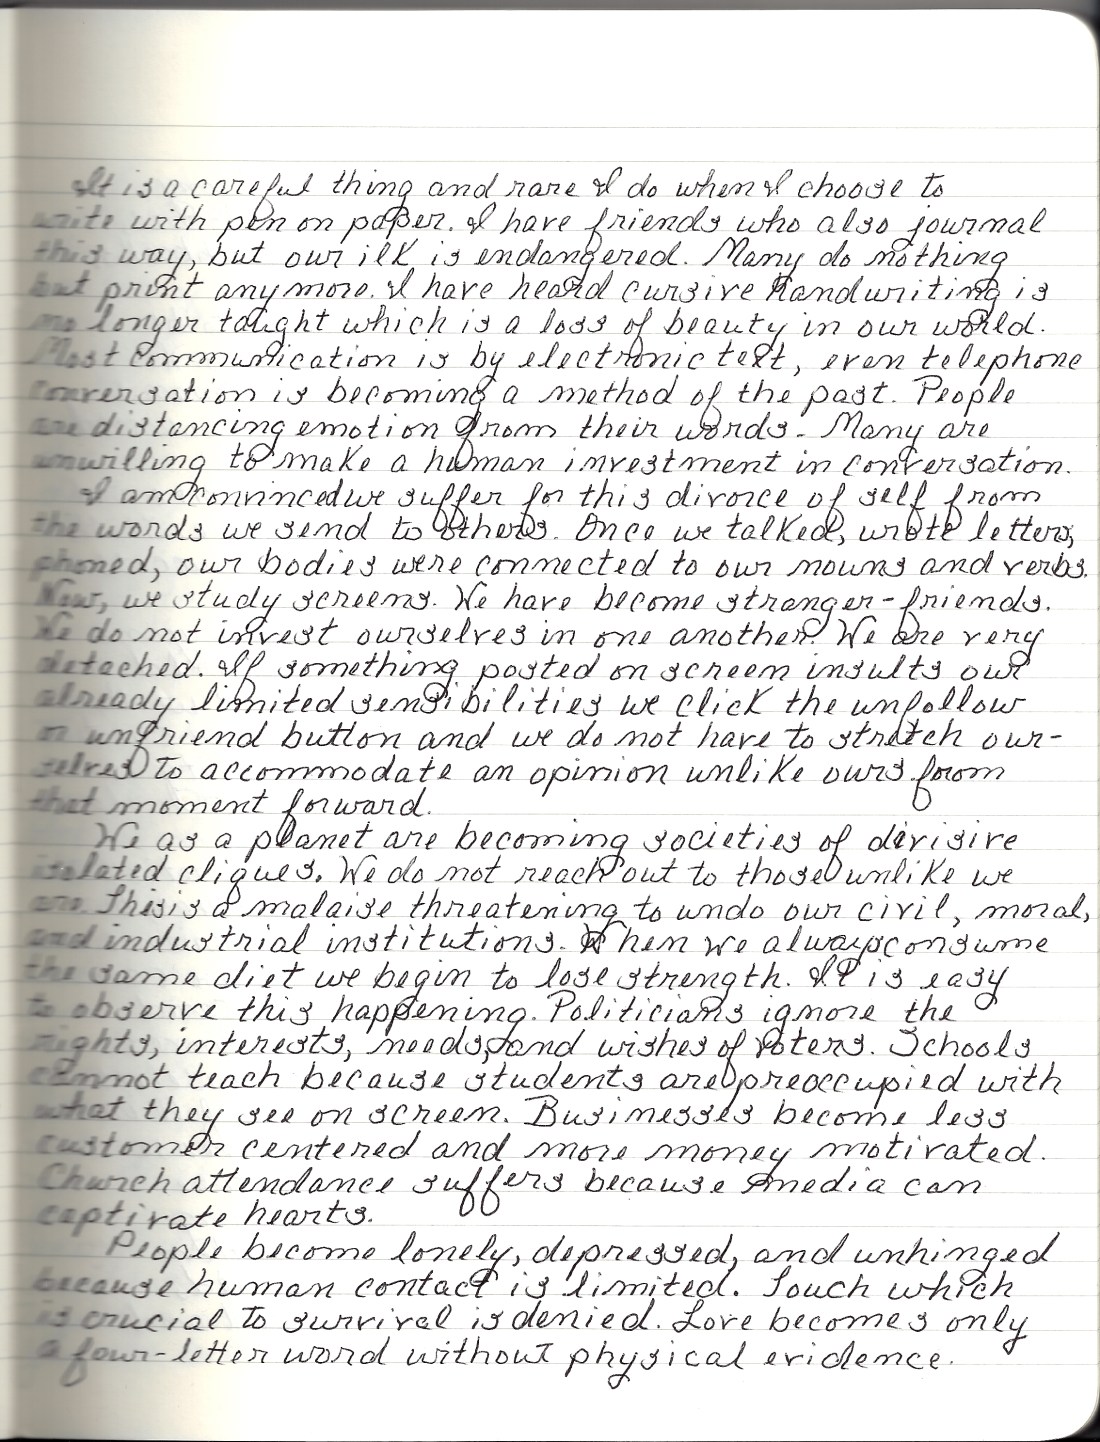 It is a careful thing and rare I do when I choose to
write with pen on paper. I have friends who also journal
this way, but our ilk is endangered. Many do nothing
but print anymore. I have heard cursive handwriting is
no longer taught which is a loss of beauty in our world.
Most communication is by electronic text, even telephone
conversation is becoming a method of the past. People
are distancing emotion from their words. Many are
unwilling to make a human investment in conversation.
I am convinced we suffer for this divorce of self from
the words we send to others. Once we talked, wrote letters,
phoned, our bodies were connected to our nouns and verbs.
Now, we study screens. We have become stranger-friends.
We do not invest ourselves in one another. We are very
detached. If something posted on screen insults our
already limited sensibilities we click the unfollow
or unfriend button and we do not have to stretch our-
selves to accommodate an opinion unlike ours from
that moment forward.
We as a planet are becoming societies of divisive
isolated cliques. We do not reach out to those unlike we
are. This is a malaise threatening to undo our civil, moral,
and industrial institutions. When we always consume
the same diet we begin to lose strength. It is easy
to observe this happening. Politicians ignore the
rights, interests, needs, and wishes of voters. Schools
cannot teach because students are preoccupied with
what they see on screen. Businesses become less
customer centered and more money motivated.
Church attendance suffers because media can
captivate hearts.
People become lonely, depressed, and unhinged
because human contact is limited. Touch which
is crucial to survival is denied. Love becomes only
a four-letter word without physical evidence.